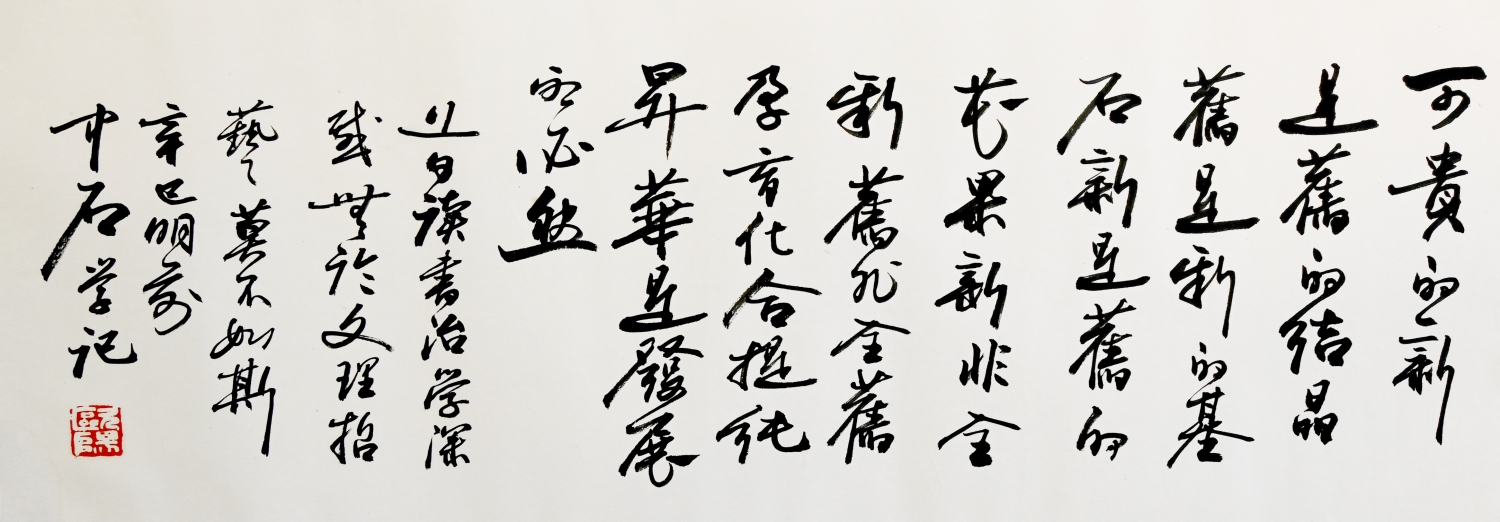 可貴的新
是舊的結晶
舊是新的基
石新是舊的
花果新非全
新舊非全舊
孕育化合提純
昇華是發展
的必然
近日读書治学深
感無論文理哲
藝莫不如斯
辛巳明前
中石学记